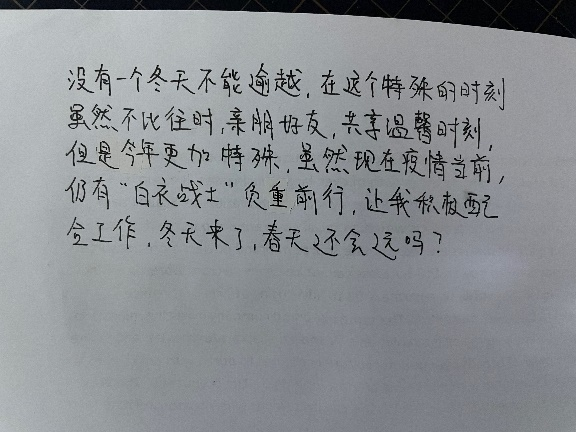 没有一个冬天不能逾越，在这个特殊的时刻
虽然不比往时，亲朋好友，共享温馨时刻，
但是今年更加特殊，虽然现在疫情当前，
仍有“白衣战士”负重前行，让我积极配
合工作，冬天来了，春天还会远吗？